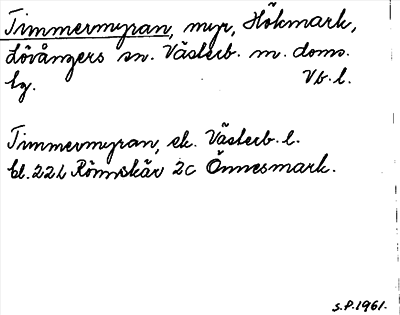 Timmermyran, myr, Hökmark,
Lövångers sn. Västerb. m. doms.
lg. Vb. l.
Timmermyran, ek. Västerb. l.
bl. 22 L Rönnskär 2c Önnesmark.
S.P. 1961.